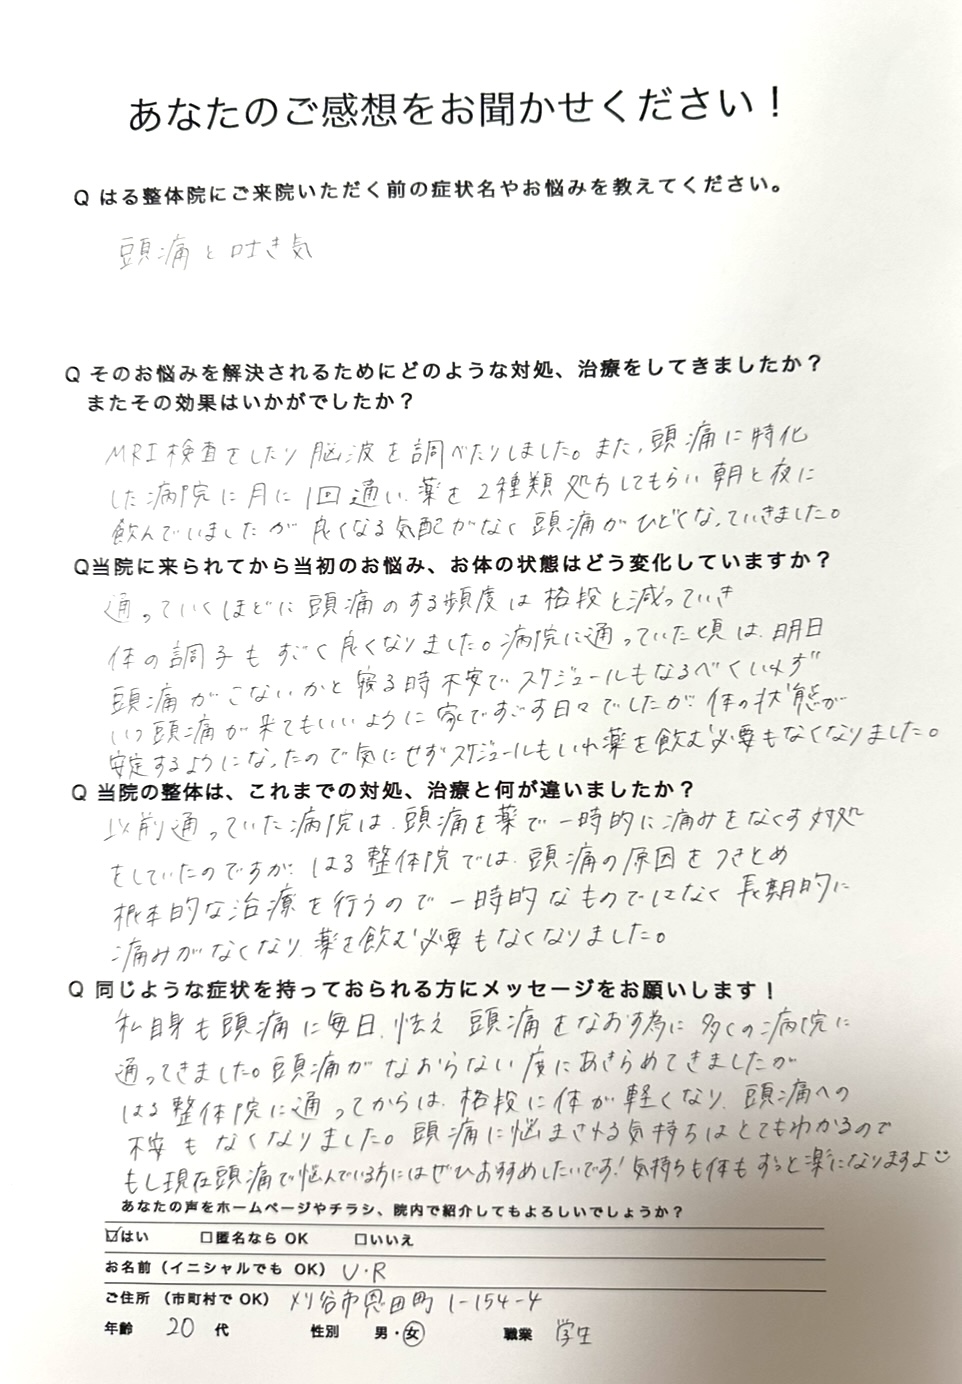 あなたのご感想をお聞かせください！
Q はる整体院にご来院いただく前の症状名やお悩みを教えてください。
頭痛と吐き気
Q そのお悩みを解決されるためにどのような対処、治療をしてきましたか？
またその効果はいかがでしたか？
MRI検査をしたり脳波を調べたりしました。また、頭痛に特化
した病院に月に1回通い、薬を2種類処方してもらい朝と夜に
飲んでいましたが良くなる気配がなく頭痛がひどくなっていきました。
Q当院に来られてから当初のお悩み、お体の状態はどう変化していますか？
通っていくほどに頭痛のする頻度は格段と減っていき
体の調子もすごく良くなりました。病院に通っていた頃は、明日
頭痛がこないかと寝る時不安でスケジュールもなるべくいれず
いつ頭痛が来てもいいように家ですごす日々でしたが、体の状態が
安定するようになったので気にせずスケジュールもいれ薬を飲む必要もなくなりました。
Q 当院の整体は、これまでの対処、治療と何が違いましたか？
以前通っていた病院は、頭痛を薬で一時的に痛みをなくす対処
をしていたのですが、はる整体院では、頭痛の原因をつきとめ
根本的な治療を行うので一時的なものではなく長期的に
痛みがなくなり、薬を飲む必要もなくなりました。
Q 同じような症状を持っておられる方にメッセージをお願いします！
私自身も頭痛に毎日、怯え 頭痛をなおす為に多くの病院に
通ってきました。頭痛がなおらない度にあきらめてきましたが
はる整体院に通ってからは、格段に体が軽くなり、頭痛への
不安もなくなりました。頭痛に悩まされる気持ちはとてもわかるので
もし現在頭痛で悩んでいる方にはぜひおすすめしたいです！気持ちも体もずっと楽になりますよ☺
あなたの声をホームページやチラシ、院内で紹介してもよろしいでしょうか？
☑はい □匿名なら OK □いいえ
お名前（イニシャルでも OK） U・R
ご住所（市町村で OK） 刈谷市恩田町 1-154-4
年齢 20 代 性別 男・女 職業 学生